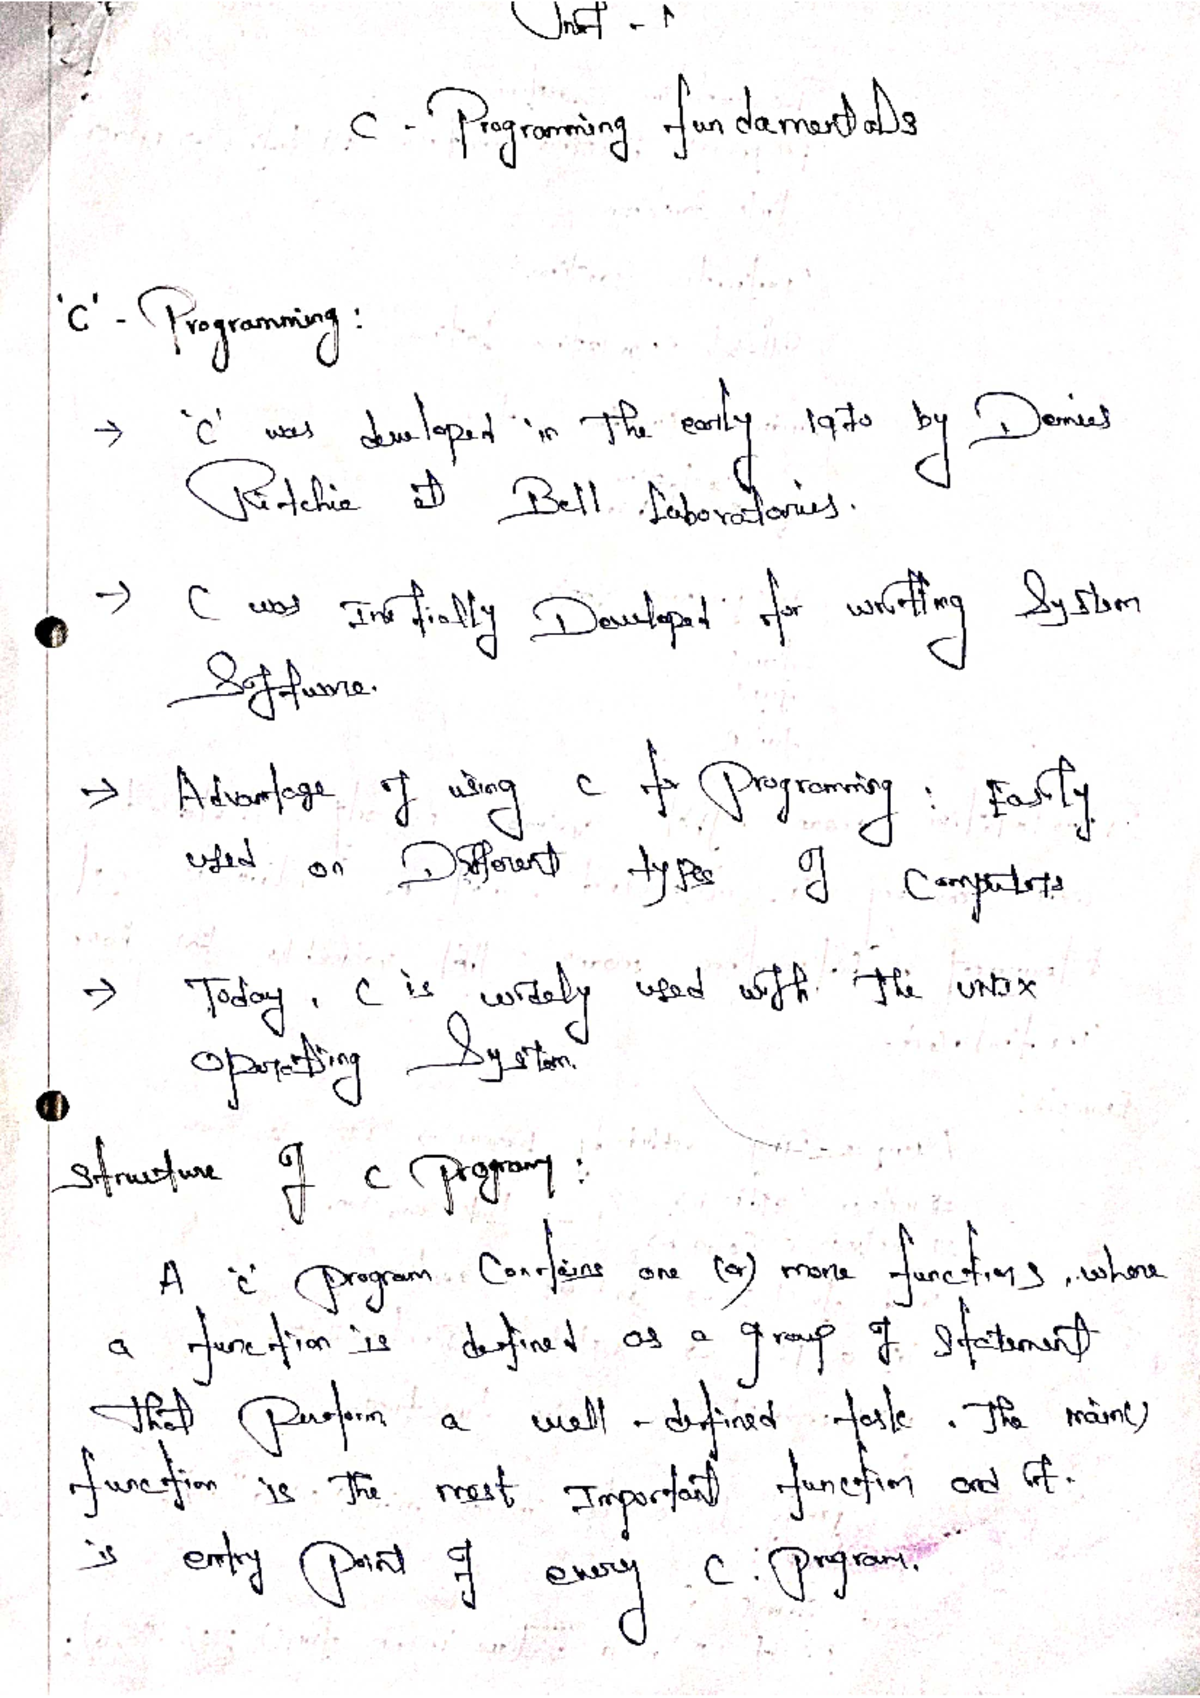 Unit - 1
C - Programming fundamentals
'C' - Programming :
→ 'C' was developed in the early 1970 by Dennies
Ritchie at Bell Laboratories.
→ C was Initially Developed for writting System
Software.
→ Advantage of using C for Programming : Easily
used on Different types of Computers
→ Today, C is widely used with the UNIX
operating System.
Structure of C Program :
A 'c' program Contains one (or) more functions, where
a function is defined as a group of statement
that perform a well - defined task. The main()
function is the most Important function and it.
is entry point of every C program.